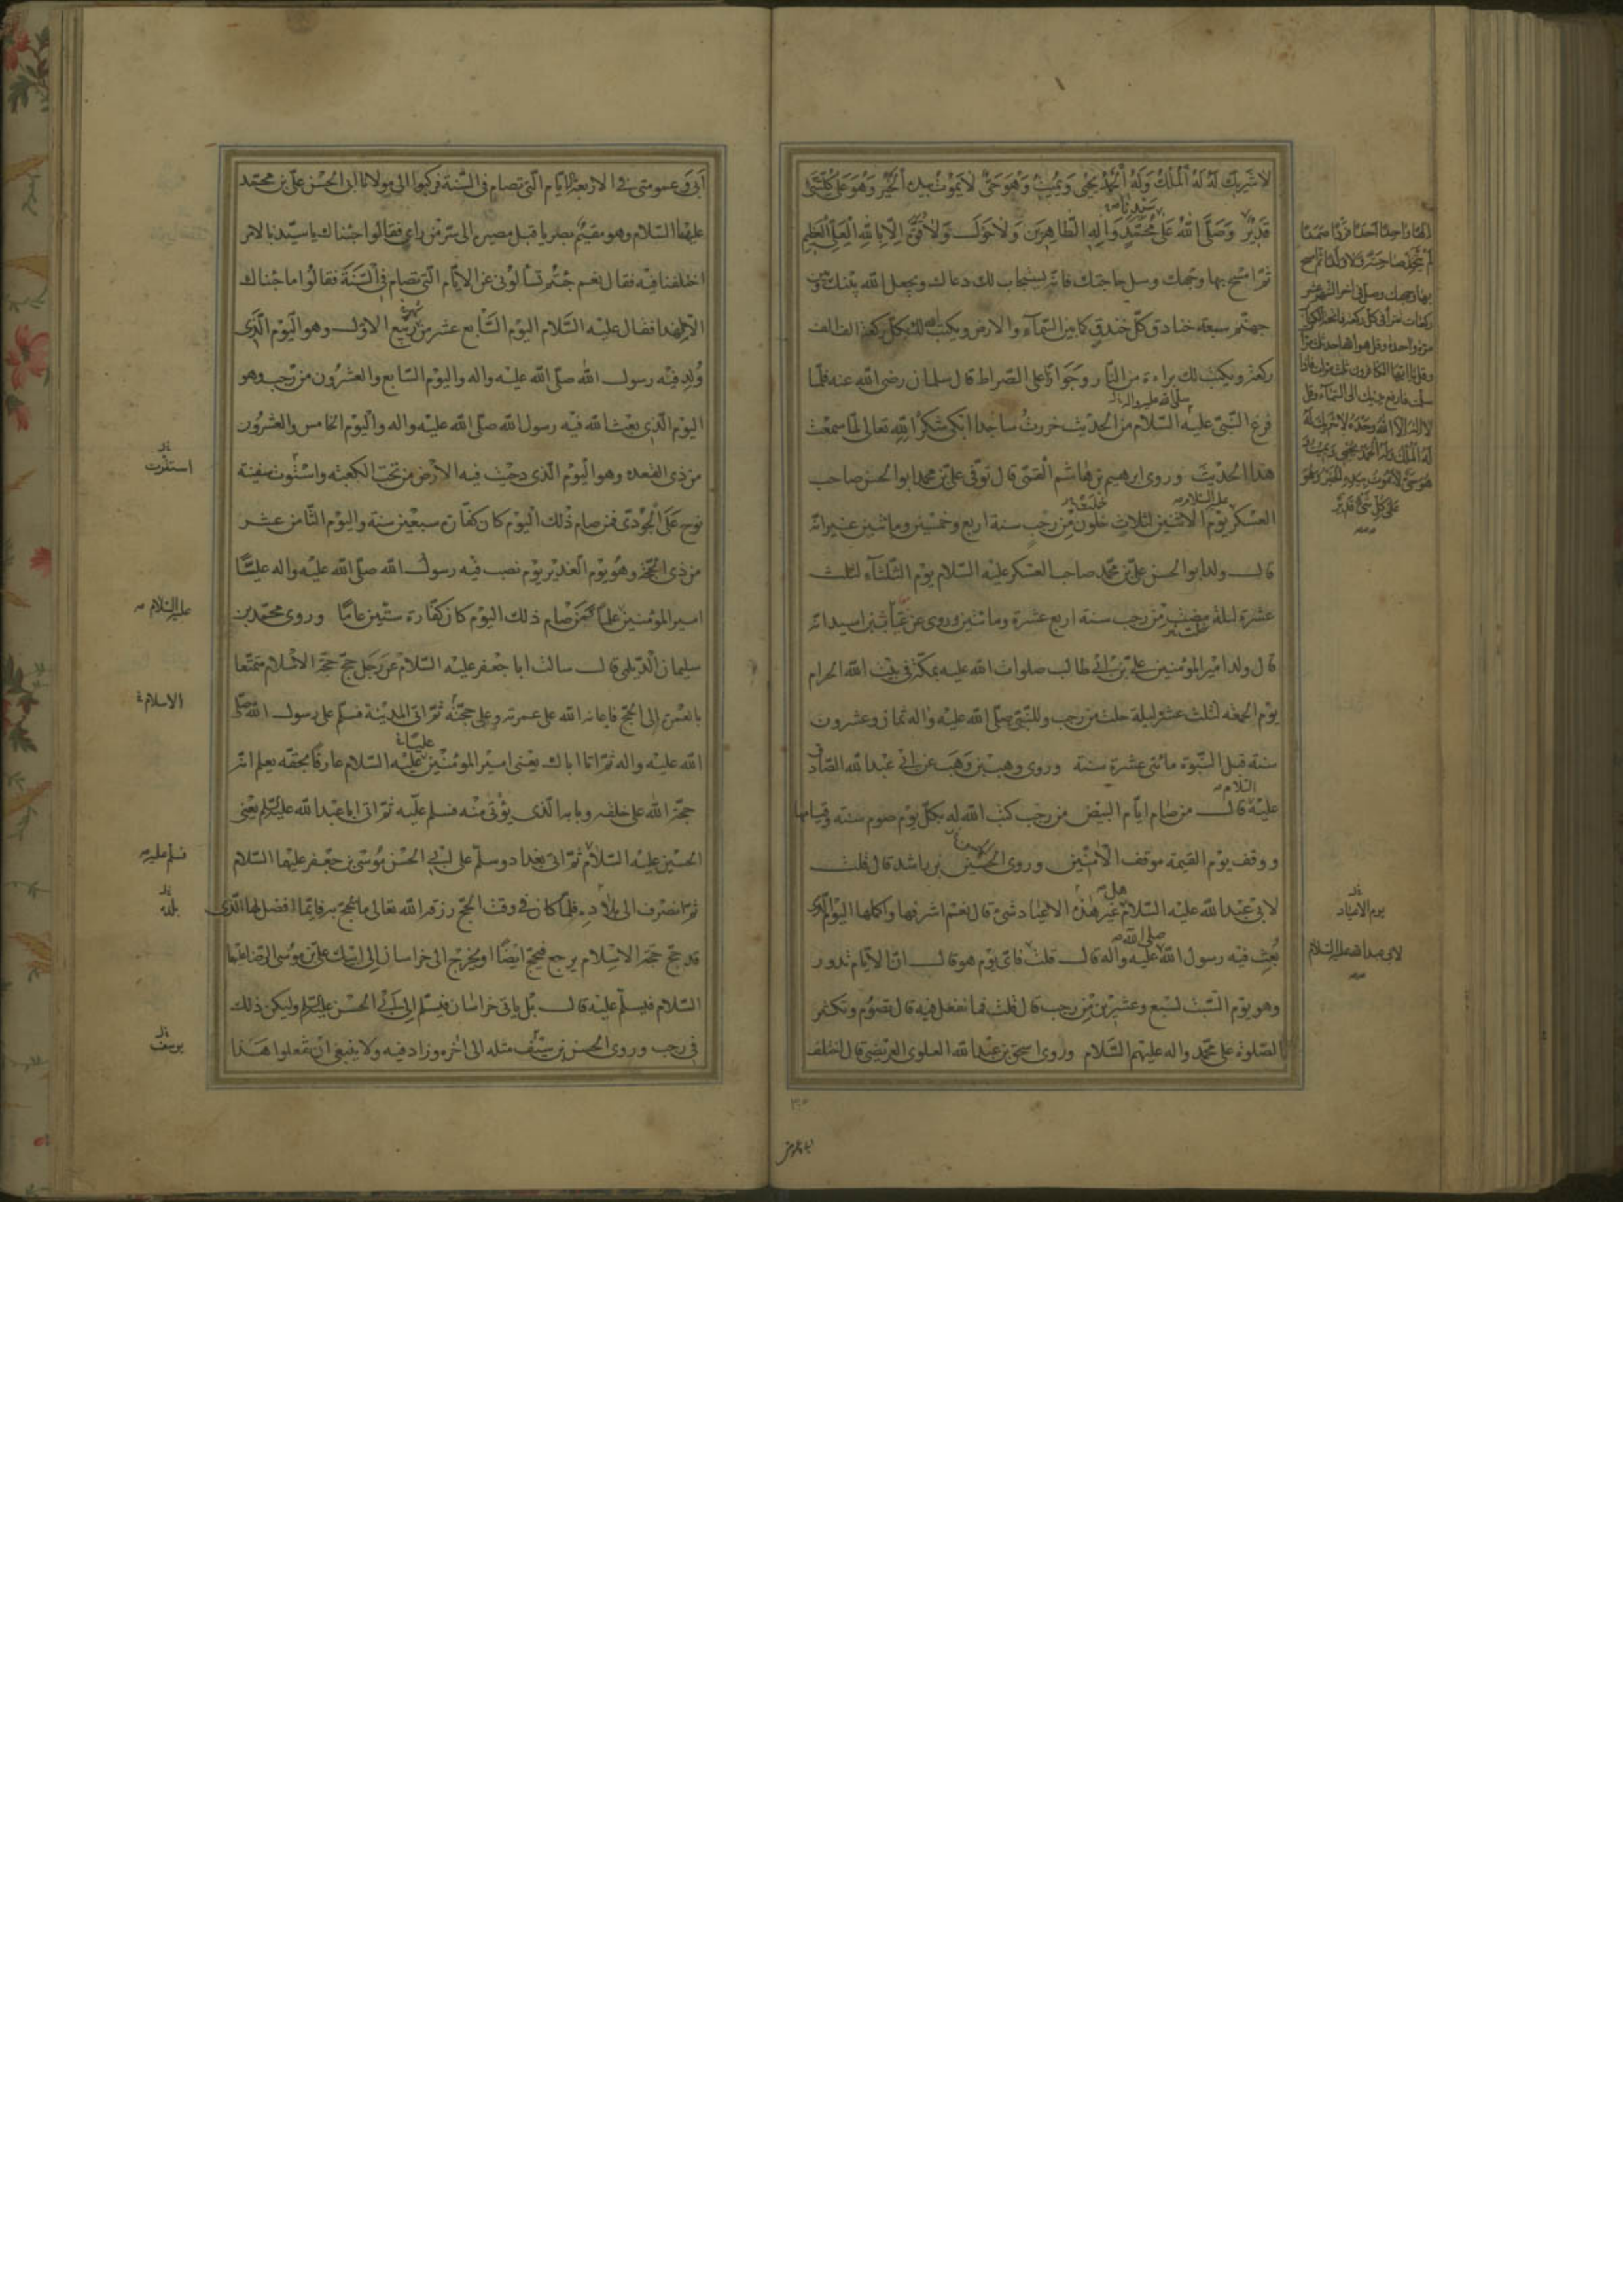 لا شَرِيكَ لَهُ لَهُ الْمُلْكُ وَلَهُ الْحَمْدُ يُحْيِي وَيُمِيتُ وَهُوَ حَيٌّ لا يَمُوتُ بِيَدِهِ الْخَيْرُ وَهُوَ عَلى كُلِّ شَيْءٍ
قَدِيرٌ وَصَلَّى اللهُ عَلى مُحَمَّدٍ وَالِهِ الطّاهِرِينَ وَلا حَوْلَ وَلا قُوَّةَ اِلّا بِاللهِ الْعَلِيِّ الْعَظِيمِ
سيدنا
ثمّ امسح بها وجهك وسل حاجتك فانه يستجاب لك دعاك ويجعل الله بينك وبين
جهنّم سبعة خنادق كلّ خندق كما بين السّمآء والارض ويكتب لك بكلّ ركعة الف الف
ركعة ويكتب لك براءة من النّار وجوازًا على الصّراط قال سلمان رضى الله عنه فلمّا
صلى الله عليه واله
فرغ النّبىّ عليه السّلام من الحديث خررت ساجدا ابكى شكرا لله تعالى لمّا سمعت
هذا الحديث وروى ابرهيم بن هاشم القمّى قال توفّى علىّ بن محمد ابو الحسن صاحب
عليه السلام
العسكر يوم الاثنين لثلاث خلون من رجب سنة اربع وخمسين وماتين
قال ولد ابو الحسن علىّ بن محمّد صاحب العسكر عليه السّلام يوم الثّلثآء لثلث
عشرة ليلة مضيت من رجب سنة اربع عشرة وماتين وروى عن عتاب بن اسيد انه
قال ولد امير المؤمنين علىّ بن ابى طالب صلوات الله عليه بمكّة فى بيت الله الحرام
يوم الجمعه لثلث عشرة ليلة خلت من رجب وللنّبىّ صلّى الله عليه واله ثمان وعشرون
سنة قبل النّبوة باثنتى عشرة سنة وروى وهب بن وهب عن ابى عبد الله الصّادق
السّلام
عليه قال من صام ايّام البيض من رجب كتب الله له بكلّ يوم صوم سنة وقيامها
ووقف يوم القيمة موقف الآمنين وروى الحسين بن راشد قال قلت
هل
لابى عبد الله عليه السّلام غير هذه الاعياد شىء قال نعم اشرفها واكملها اليوم الّذى
صلى الله
بُعث فيه رسول الله عليه واله قال قلت فاىّ يوم هو قال انّ الايّام تدور
وهو يوم السّبت لسبع وعشرين من رجب قال قلت فما نفعل فيه قال تصوم وتكثر
الصّلوة على محمّد واله عليهم السّلام وروى اسحق بن عبد الله العلوى العريضى قال اختلف
اِلهًا واحِدًا اَحَدًا فَرْدًا صَمَدًا
لَمْ يَتَّخِذْ صاحِبَةً وَلا وَلَدًا ثم امسح
بها وجهك وصل فى اخر الشهر عشر
ركعات تقرأ فى كل ركعة فاتحة الكتاب
مرة واحدة وقل هو الله احد ثلث مرات
وقل يا ايها الكافرون ثلث مرات فاذا
سلمت فارفع يديك الى السّمآء وقل
لا اِلهَ اِلّا اللهُ وَحْدَهُ لا شَرِيكَ لَهُ
لَهُ الْمُلْكُ وَلَهُ الْحَمْدُ يُحْيِي وَيُمِيتُ وَ
هُوَ حَيٌّ لا يَمُوتُ بِيَدِهِ الْخَيْرُ وَهُوَ
عَلى كُلِّ شَيْءٍ قَدِيرٌ
يوم الاعياد
لابى عبد الله عليه السّلام
ابى وعمومتى فى الاربعة الايّام الّتى تصام فى السّنة فركبوا الى مولانا ابى الحسن علىّ بن محمّد
عليهما السّلام وهو مقيم بصريا قبل مصيره الى سرّ من راى فقالوا جئناك يا سيّدنا لامر
اختلفنا فيه فقال نعم جئتم تسألونى عن الايّام الّتى تصام فى السّنة فقالوا ما جئناك
الّا لهذا فقال عليه السّلام اليوم السّابع عشر من ربيع الاوّل وهو اليوم الّذى
شهر
وُلِد فيه رسول الله صلّى الله عليه واله واليوم السّابع والعشرون من رجب وهو
اليوم الّذى بعث الله فيه رسول الله صلّى الله عليه واله واليوم الخامس والعشرون
من ذى القعده وهو اليوم الّذى دحيت فيه الارض من تحت الكعبة واستوت سفينة
نوح على الجودىّ فمن صام ذلك اليوم كان كفّارة سبعين سنة واليوم الثّامن عشر
من ذى الحجّة وهو يوم الغدير يوم نصب فيه رسول الله صلّى الله عليه واله عليًّا
امير المؤمنين علما فمن صام ذلك اليوم كان كفّارة ستّين عامًا وروى محمّد بن
سليمان الدّيلمى قال سالت ابا جعفر عليه السّلام عن رجل حجّ حجّة الاسلام متمتّعا
بالعمرة الى الحجّ فاعانه الله على عمرته وعلى حجّته ثمّ اتى المدينة فسلّم على رسول الله صلّى
عليّا
الله عليه واله ثمّ اتا اباك يعنى امير المؤمنين عليه السّلام عارفًا بحقّه يعلم انّه
حجّة الله على خلقه وبابه الّذى يؤتى منه فسلم عليه ثمّ اتى ابا عبد الله عليه السّلم يعنى
الحسين عليه السّلام ثمّ اتى بغداد وسلّم على ابى الحسن موسى بن جعفر عليهما السّلام
ثمّ انصرف الى بلاده فلمّا كان فى وقت الحجّ رزقه الله تعالى ما يحجّ به فايّهما افضل لهذا الّذى
قد حجّ حجّة الاسلام يرجع فيحجّ ايضًا او يخرج الى خراسان الى ابيك علىّ بن موسى الرّضا عليهما
السّلام فيسلّم عليه قال بل ياتى خراسان فيسلّم الى ابى الحسن عليه السّلم وليكن ذلك
فى رجب وروى الحسن بن سيف مثله الى اخره وزاد فيه ولا ينبغى ان تفعلوا هذا
استقرت
عليه السّلام
الاسلام
فسلم عليه
بلده
يوسف